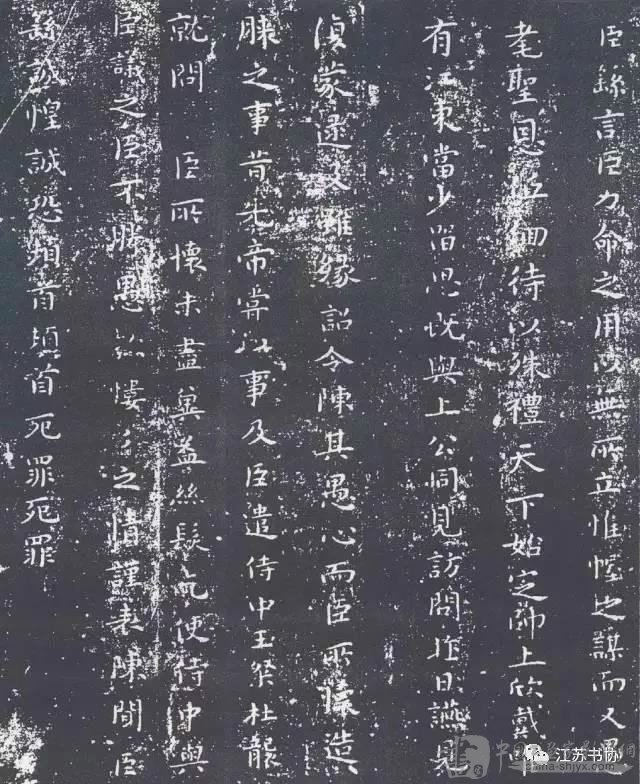 臣繇言臣力命之用以無所立惟幄之謀而又愚
耄聖恩低徊待以殊禮天下始定師上欣戴唯
有江東當少留思既與上公同見訪問昨日讌見
復蒙逮及雖緣詔令陳其愚心而臣所懷造
膝之事昔先帝嘗以事及臣遣侍中王粲杜襲
就問 臣所懷未盡奚益絲髮乞使侍中與
臣議之臣不勝愚款慺々之情謹表陳聞臣
繇誠惶誠恐頓首頓首死罪死罪
江苏书协